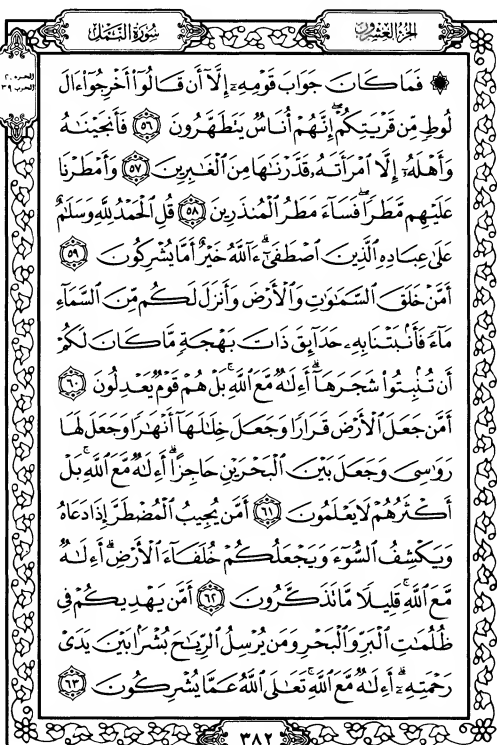 سُورَةُ النَّمْلِ
الجُزْءُ العِشْرُونَ
الجزء ٢٠
الحزب ٣٩
۞ فَمَا كَانَ جَوَابَ قَوْمِهِۦٓ إِلَّآ أَن قَالُوٓا۟ أَخْرِجُوٓا۟ ءَالَ
لُوطٍ مِّن قَرْيَتِكُمْ ۖ إِنَّهُمْ أُنَاسٌ يَتَطَهَّرُونَ ٥٦ فَأَنجَيْنَٰهُ
وَأَهْلَهُۥٓ إِلَّا ٱمْرَأَتَهُۥ قَدَّرْنَٰهَا مِنَ ٱلْغَٰبِرِينَ ٥٧ وَأَمْطَرْنَا
عَلَيْهِم مَّطَرًا ۖ فَسَآءَ مَطَرُ ٱلْمُنذَرِينَ ٥٨ قُلِ ٱلْحَمْدُ لِلَّهِ وَسَلَٰمٌ
عَلَىٰ عِبَادِهِ ٱلَّذِينَ ٱصْطَفَىٰٓ ۗ ءَآللَّهُ خَيْرٌ أَمَّا يُشْرِكُونَ ٥٩
أَمَّنْ خَلَقَ ٱلسَّمَٰوَٰتِ وَٱلْأَرْضَ وَأَنزَلَ لَكُم مِّنَ ٱلسَّمَآءِ
مَآءً فَأَنۢبَتْنَا بِهِۦ حَدَآئِقَ ذَاتَ بَهْجَةٍ مَّا كَانَ لَكُمْ
أَن تُنۢبِتُوا۟ شَجَرَهَآ ۗ أَءِلَٰهٌ مَّعَ ٱللَّهِ ۚ بَلْ هُمْ قَوْمٌ يَعْدِلُونَ ٦٠
أَمَّن جَعَلَ ٱلْأَرْضَ قَرَارًا وَجَعَلَ خِلَٰلَهَآ أَنْهَٰرًا وَجَعَلَ لَهَا
رَوَٰسِىَ وَجَعَلَ بَيْنَ ٱلْبَحْرَيْنِ حَاجِزًا ۗ أَءِلَٰهٌ مَّعَ ٱللَّهِ ۚ بَلْ
أَكْثَرُهُمْ لَا يَعْلَمُونَ ٦١ أَمَّن يُجِيبُ ٱلْمُضْطَرَّ إِذَا دَعَاهُ
وَيَكْشِفُ ٱلسُّوٓءَ وَيَجْعَلُكُمْ خُلَفَآءَ ٱلْأَرْضِ ۗ أَءِلَٰهٌ
مَّعَ ٱللَّهِ ۚ قَلِيلًا مَّا تَذَكَّرُونَ ٦٢ أَمَّن يَهْدِيكُمْ فِى
ظُلُمَٰتِ ٱلْبَرِّ وَٱلْبَحْرِ وَمَن يُرْسِلُ ٱلرِّيَٰحَ بُشْرًۢا بَيْنَ يَدَىْ
رَحْمَتِهِۦٓ ۗ أَءِلَٰهٌ مَّعَ ٱللَّهِ ۚ تَعَٰلَى ٱللَّهُ عَمَّا يُشْرِكُونَ ٦٣
٣٨٢